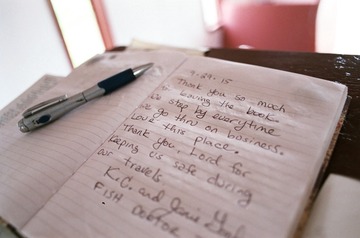 9-29-15
Thank you so much
for leaving the book.
We stop by everytime
we go thru on business.
Love this place.
Thank you, Lord for
keeping us safe during
our travels
K.C. and
FISH DOCTOR